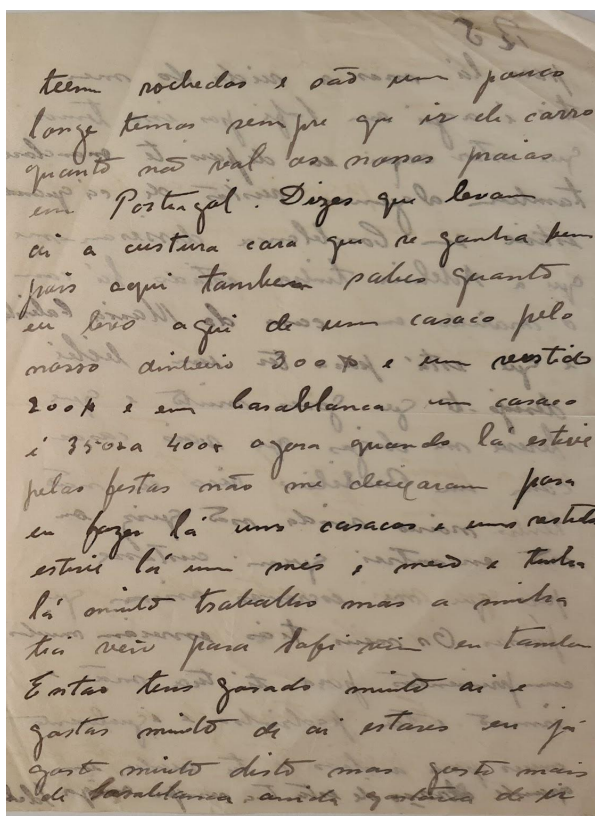 teem rochedos e são um pouco
longe temos sempre que ir de carro
quanto não val as nossas praias
em Portugal. Dizes que levam
ai a custura cara que se ganha bem
pois aqui tambem sabes quanto
eu levo aqui de um casaco pelo
nosso dinheiro 300$ e um vestido
200$ e em Casablanca um casaco
é 350 a 400$ agora quando lá estive
pelas festas não me deiçaram para
eu fazer lá uns casacos e uns vestido
estive lá um mês e meio e tinha
lá muito trabalho mas a minha
tia veio para Safi vim eu tambem
Entao tens gosado muito ai e
gostas muito de ai estares eu já
gosto muito disto mas gosto mais
de Casablanca ainda gostaria de ir